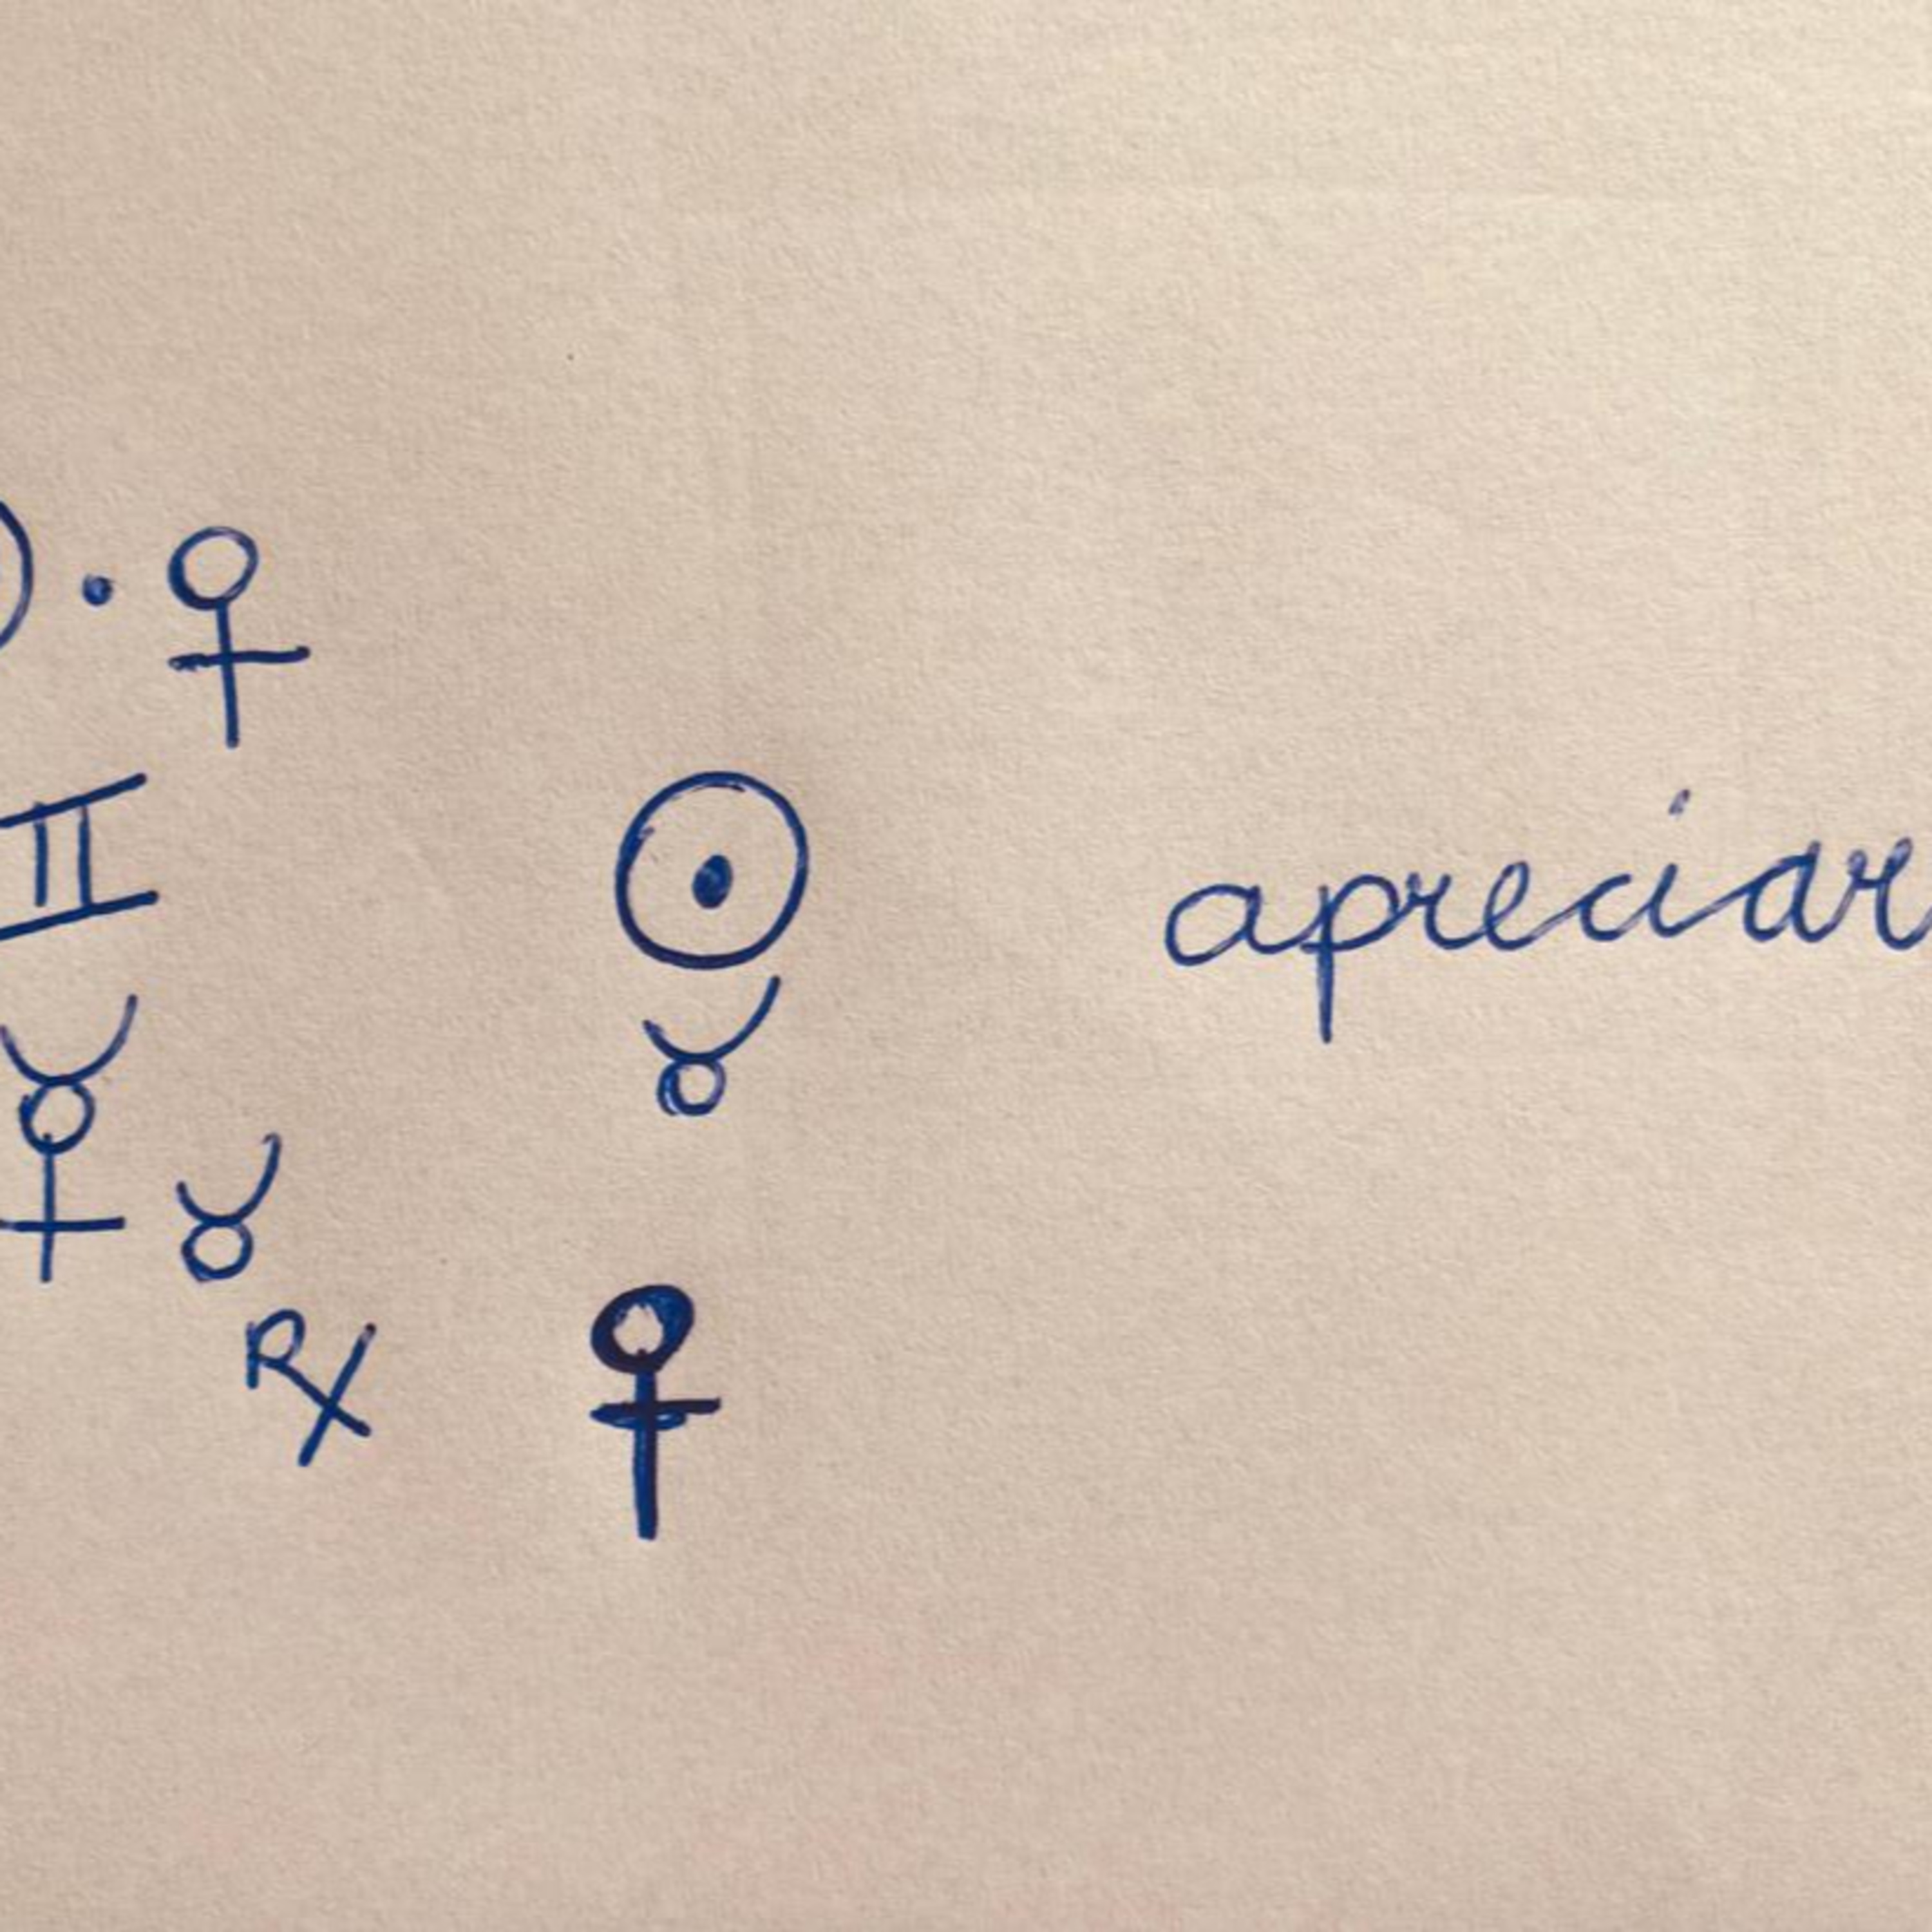 ☉ · ♀
♊ ☉ apreciar
☿ ♉ ♉
℞ ♀